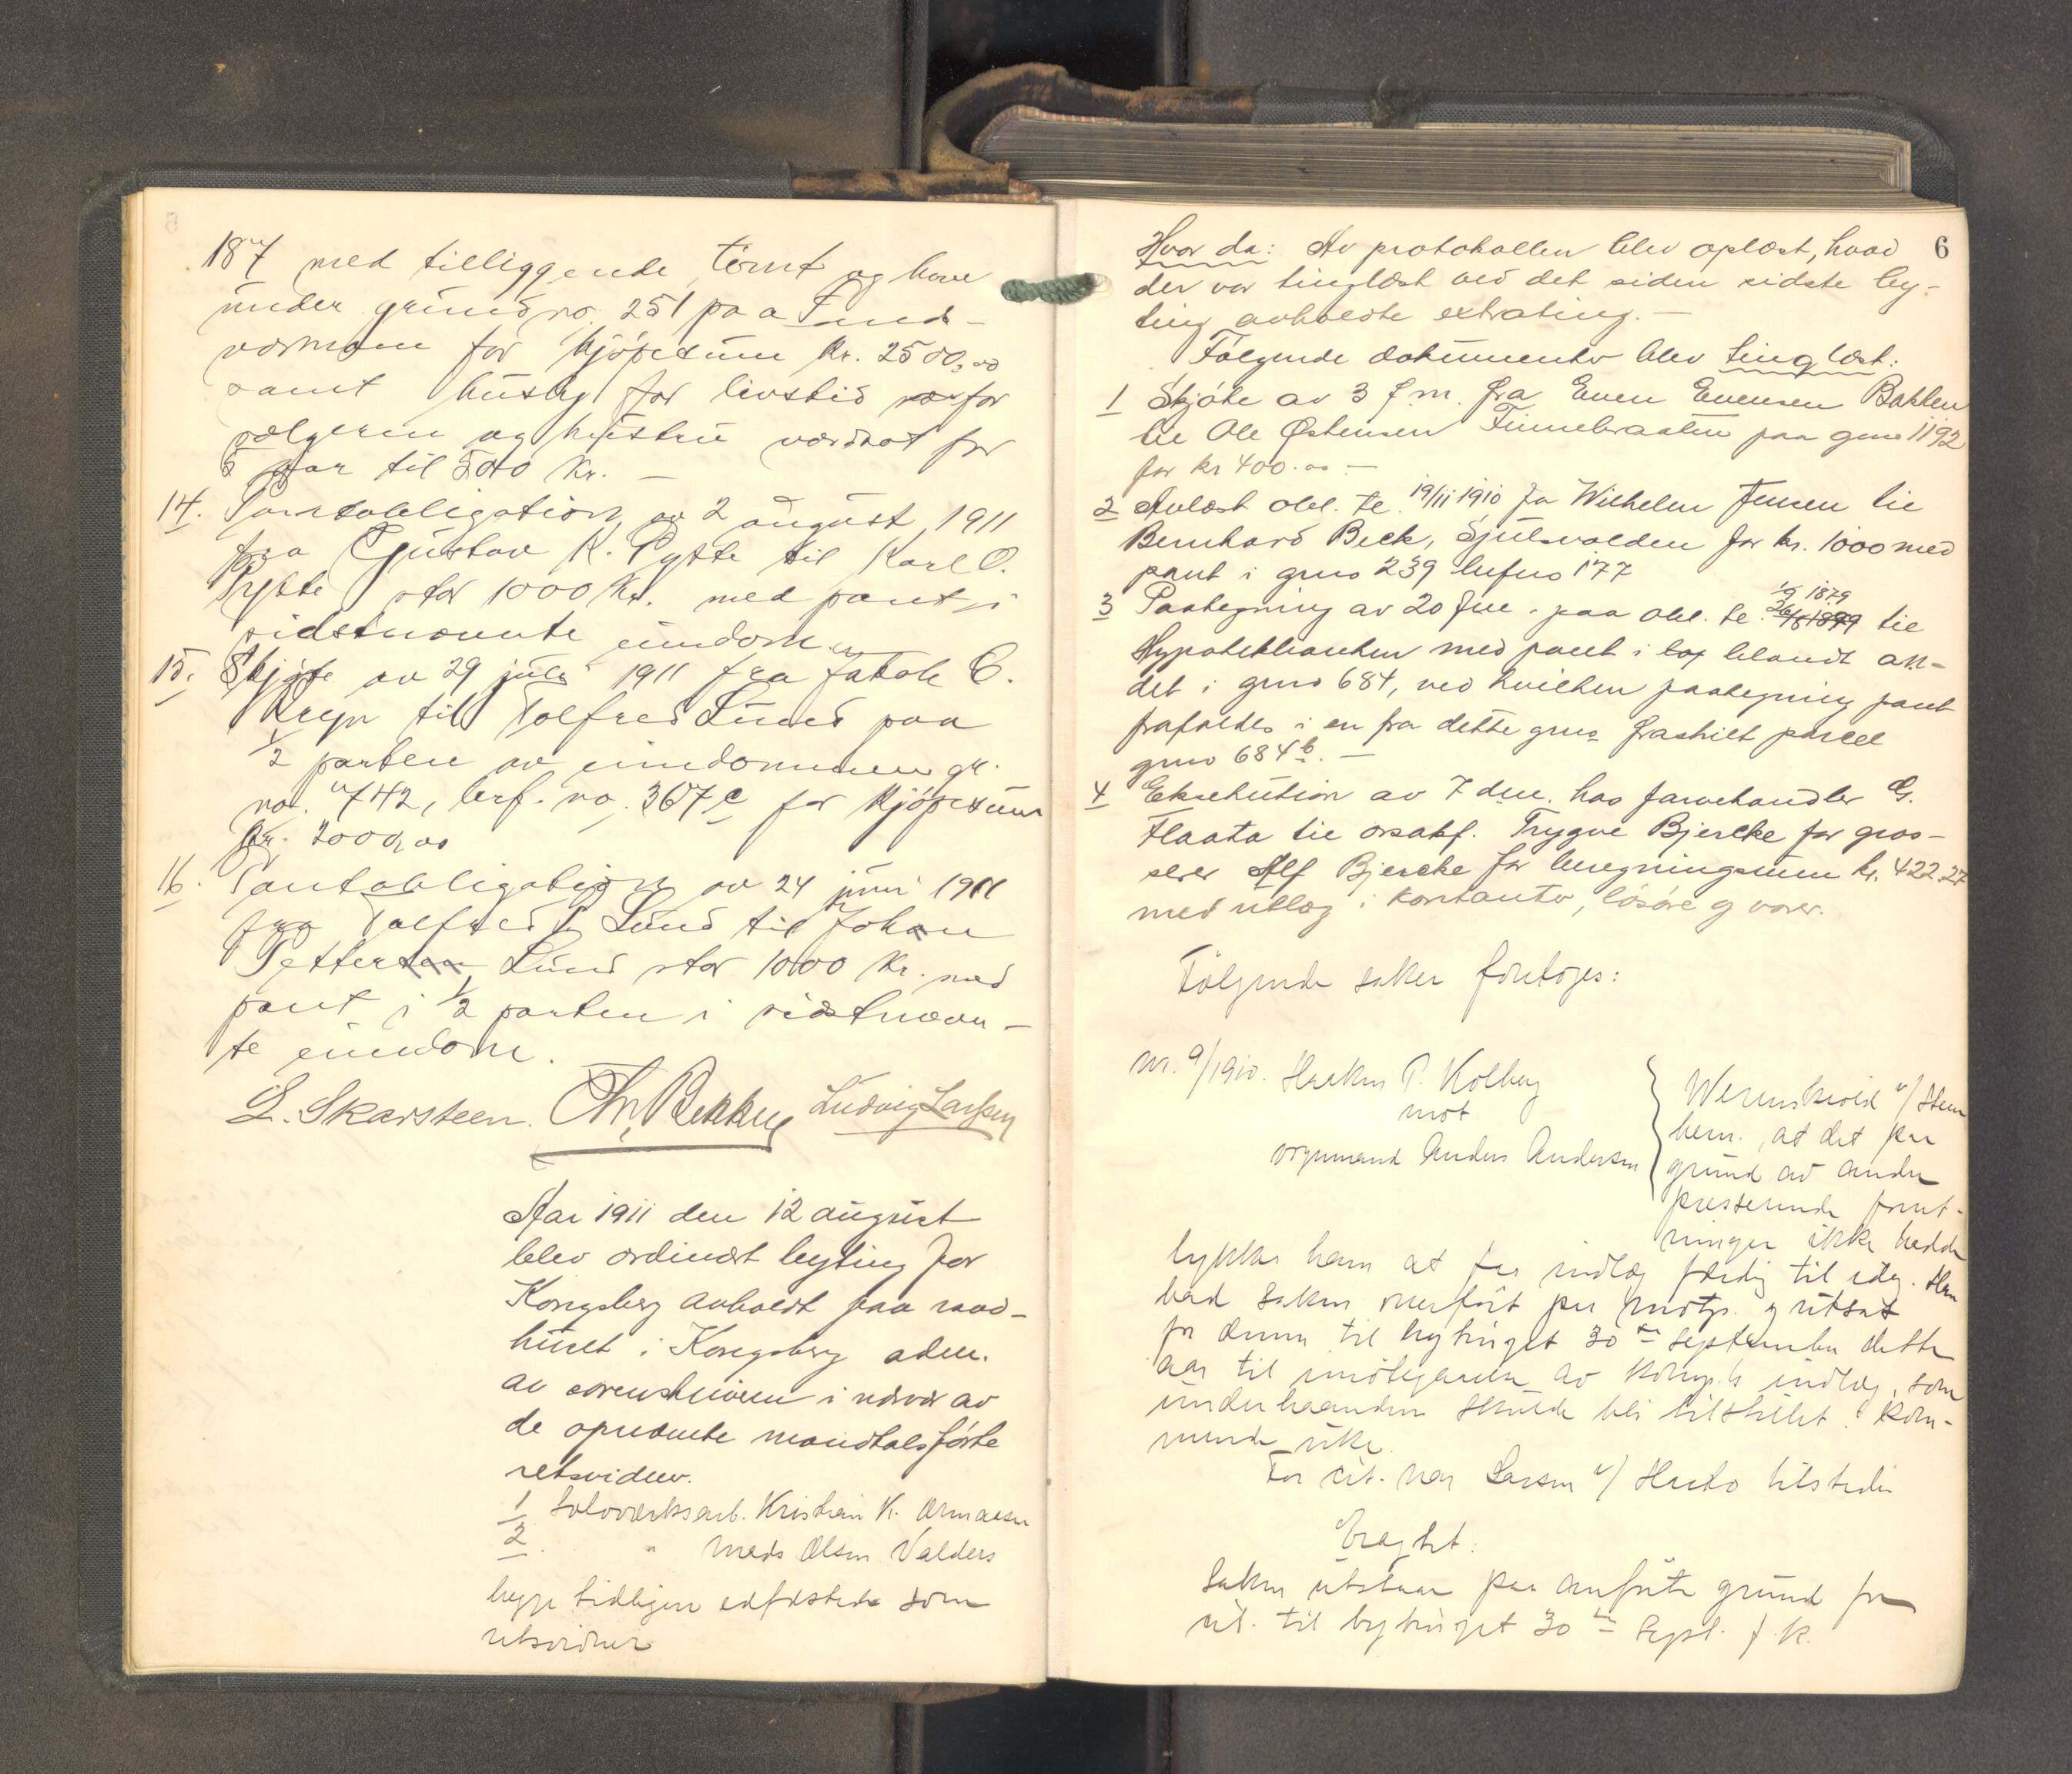 187 med tilliggende tomt og have
under grundno. 251 paa Sands-
værmoen for kjøpesum kr. 2500,00
samt husly for livstid for
sælgeren og hustru værdsat for
5 aar til 500 kr. —
14. Pantobligation av 2 august 1911
fra Gustav K. Pytte til Karl O.
Pytte stor 1000 Kr. med pant i
sidstnævnte eiendom.
15. Skjøte av 29 juli 1911 fra Jakob C.
til Tolfred Lund paa
1/2 parten av eiendommen gr.
no. 742, brf. no. 367c for kjøpesum
Kr. 2000,00
16. Pantobligation av 24 juni 1911
fra Tolfred Lund til Johan
Petter Lund stor 1000 Kr. med
pant i 1/2 parten i sidstnævn-
te eiendom.
L. Skarsteen. Chr. Bekkus Ludvig Larssen
Aar 1911 den 12 august
blev ordinært byting for
Kongsberg avholdt paa raad-
huset i Kongsberg adm.
av sorenskriveren i nærvær av
de opnævnte mandtalsførte
retsvidner.
1 Sølvverksarb. Kristian K.
2. " Mads Olsen Valders
begge tidligere edfæstede som
retsvidner
6
Hvorda: Av protokollen blev oplæst, hvad
der var tinglæst ved det siden sidste by-
ting avholdte extrating. —
Følgende dokumenter blev tinglæst:
1 Skjøte av 3 f.m. fra Even Evensen Bakken
til Ole Østensen Finnebraaten paa grno 1192
for kr 400.00 —
2 Avlæst obl. te. 19/11 1910 fra Wilhelm Jensen til
Bernhard Beck, Sjulsvolden for kr. 1000 med
pant i grno 239 bufno 177
3 Paategning av 20 f.m. paa obl. te. 1879 til
Hypotekbanken med pant i blandt an-
det i grno 684, ved hvilken paategning pant
frafaldes i en fra dette grno fraskilt parcel
grno 684b. —
4 Eksekution av 7 dm. hos farvehandler G.
Flaata til orsakf. Trygve Bjercke for gros-
serer Alf Bjercke for beregningssum kr. 422.27
med utlæg i kontanter, løsøre og varer.
Følgende saker foretoges:
Nr. 9/1910. Haakon P. Kolberg
mot
Anders Andersen
Werenskiold v/ Steen
bem. at det paa
grund av andre
presserende forret-
ninger ikke hadde
lykkes ham at faa indlæg færdig til idag. Han
bad saken overført paa motp. og utsat
for denne til bytinget 30te september dette
aar til imøtegaaelse av indlæg, som
underhaanden skulde bli tilstillet kom-
mende uke.
For cit. var Larsen v/ tilstede
Eragtet:
Saken utstaar paa anførte grund for
cit. til bytinget 30te Sept. f. k.